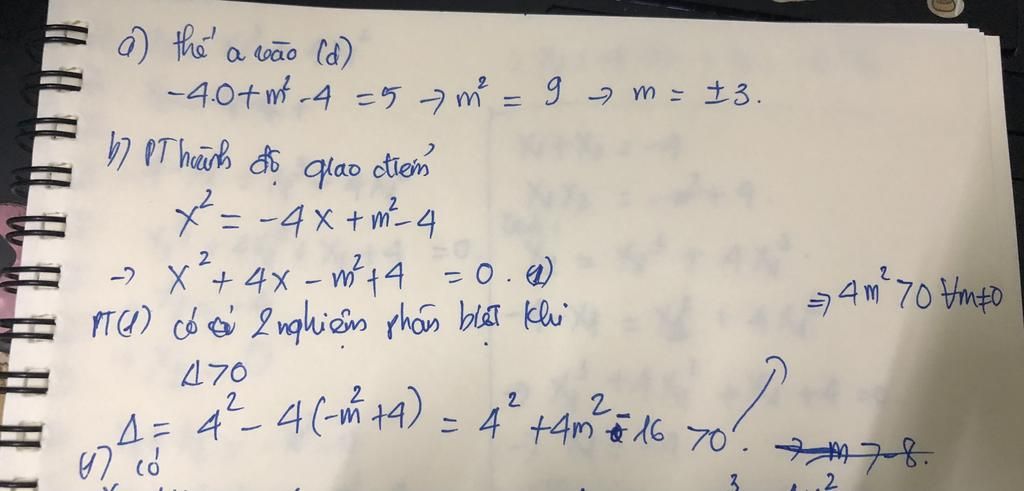 a) thế a vào (d)
-4.0+m²-4 = 5 → m² = 9 → m = ±3.
b) PT hành độ giao điểm
x² = -4x + m² - 4
→ x² + 4x - m² + 4 = 0. (1)
PT(1) có 2 nghiệm phân biệt khi
Δ > 0
Δ = 4² - 4(-m² + 4) = 4² + 4m² - 16 > 0.
⇒ 4m² > 0 ∀m≠0
→ m > -8.
(1) có